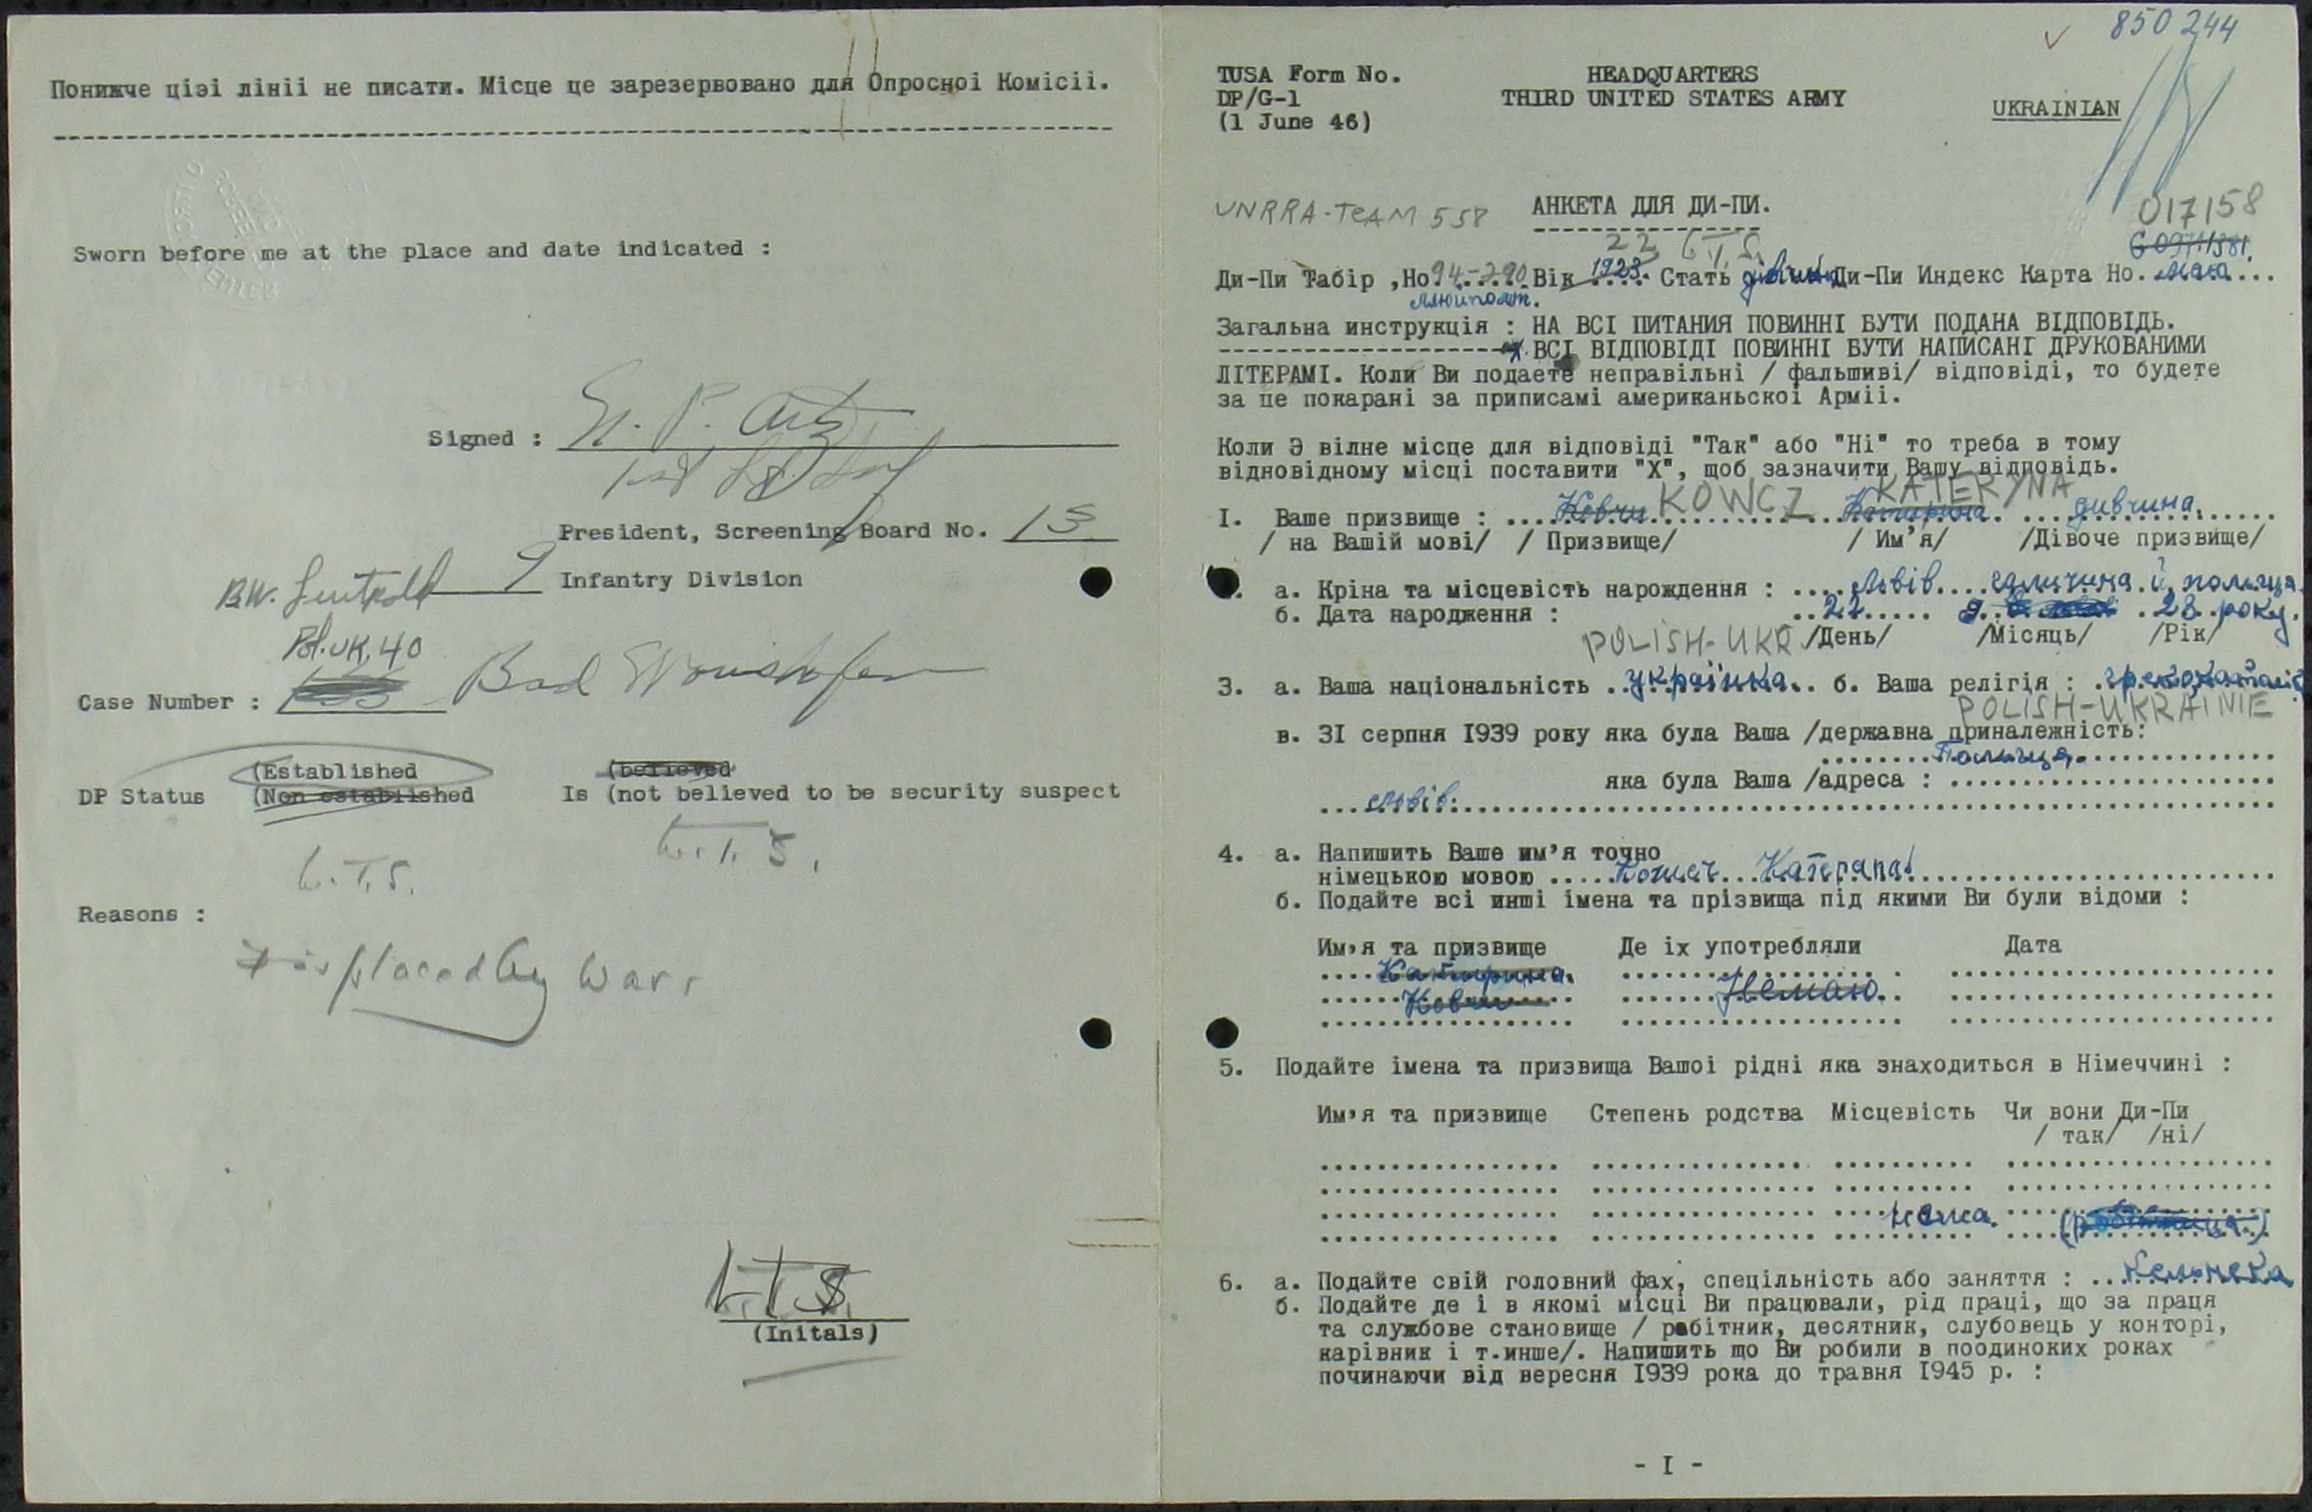 Понижче цієі лініі не писати. Місце це зарезервовано для Опросноі Комісіі.
Sworn before me at the place and date indicated :
Signed :
President, Screening Board No. 13
9 Infantry Division
Pol. UK. 40
Case Number : Bad Worishofen
DP Status (Established
(Non established
Is (believed
(not believed to be security suspect
L.T.S.
L.T.S.
Reasons :
Displaced by War.
L.T.S.
(Initals)
850 244
TUSA Form No.
DP/G-1
(1 June 46)
HEADQUARTERS
THIRD UNITED STATES ARMY
UKRAINIAN
UNRRA-TEAM 558
АНКЕТА ДЛЯ ДИ-ПИ.
017158
22 L.T.S.
Ди-Пи Табір ,Но.94-290 Вік 1923 Стать дівчина Ди-Пи Индекс Карта Но.
Загальна инструкція : НА ВСІ ПИТАНИЯ ПОВИННІ БУТИ ПОДАНА ВІДПОВІДЬ.
ВСІ ВІДПОВІДІ ПОВИННІ БУТИ НАПИСАНІ ДРУКОВАНИМИ
ЛІТЕРАМІ. Коли Ви подаете неправільні / фальшиві/ відповіді, то будете
за це покарані за приписамі американьскоі Арміі.
Коли Э вілне місце для відповіді "Так" або "Ні" то треба в тому
відновідному місці поставити "Х", щоб зазначити Вашу відповідь.
I. Ваше призвище : Ковчи KOWCZ Катирина KATERYNA дивчина
/ на Вашій мові/ / Призвище/ / Им'я/ /Дівоче призвище/
а. Кріна та місцевість нарождення : Львів галичина й польща
б. Дата народження : 22 9 23 року.
POLISH-UKR /День/ /Місяць/ /Рік/
3. а. Ваша національність українка б. Ваша релігія : грекокатолік
POLISH-UKRAINIE
в. 3I серпня I939 року яка була Ваша /державна приналежність:
Польща.
яка була Ваша /адреса :
Львів.
4. а. Напишить Ваше им'я точно
німецькою мовою
б. Подайте всі инші імена та прізвища під якими Ви були відоми :
Им,я та призвище Де іх употребляли Дата
Катирина
Ковчи Немаю
5. Подайте імена та призвища Вашоі рідні яка знаходиться в Німеччині :
Им,я та призвище Степень родства Місцевість Чи вони Ди-Пи
/ так/ /ні/
нема.
6. а. Подайте свій головний фах, спецільність або заняття : Кельнека
б. Подайте де і в якомі місці Ви працювали, рід праці, що за праця
та службове становище / робітник, десятник, слубовець у конторі,
карівник і т.инше/. Напишить що Ви робили в поодиноких роках
починаючи від вересня I939 рока до травня I945 р. :
- I -